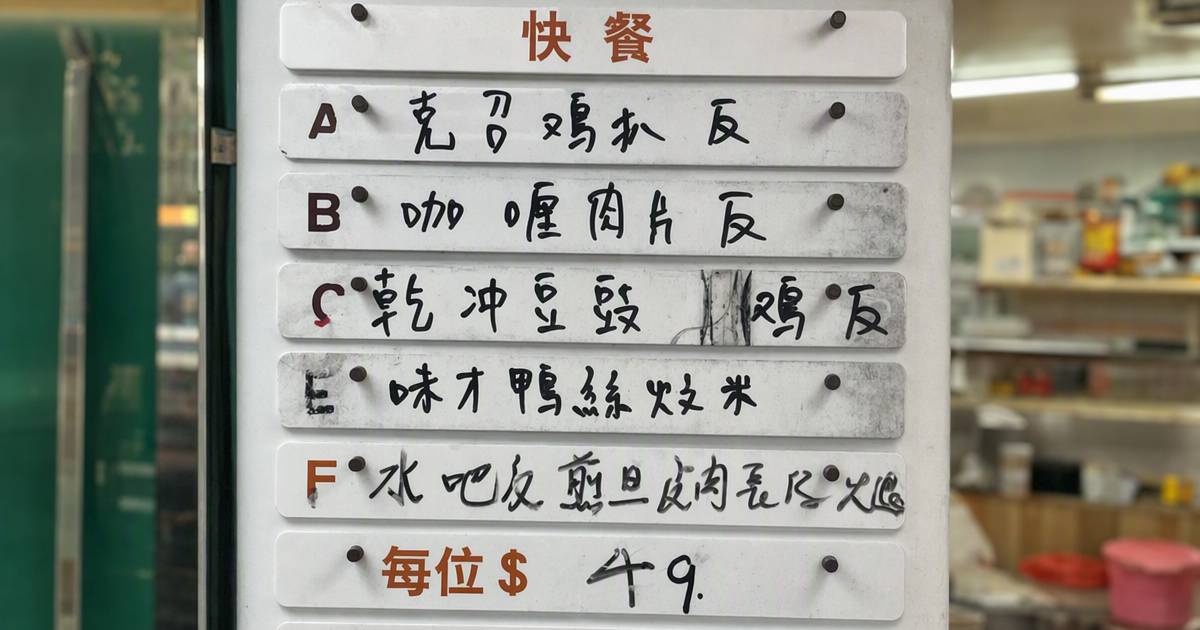 快餐
A 克召鸡扒反
B 咖喱肉片反
C 乾冲豆豉鸡反
E 味才鴨絲炆米
F 水吧反煎旦皮肉長仔火腿
每位$ 49.